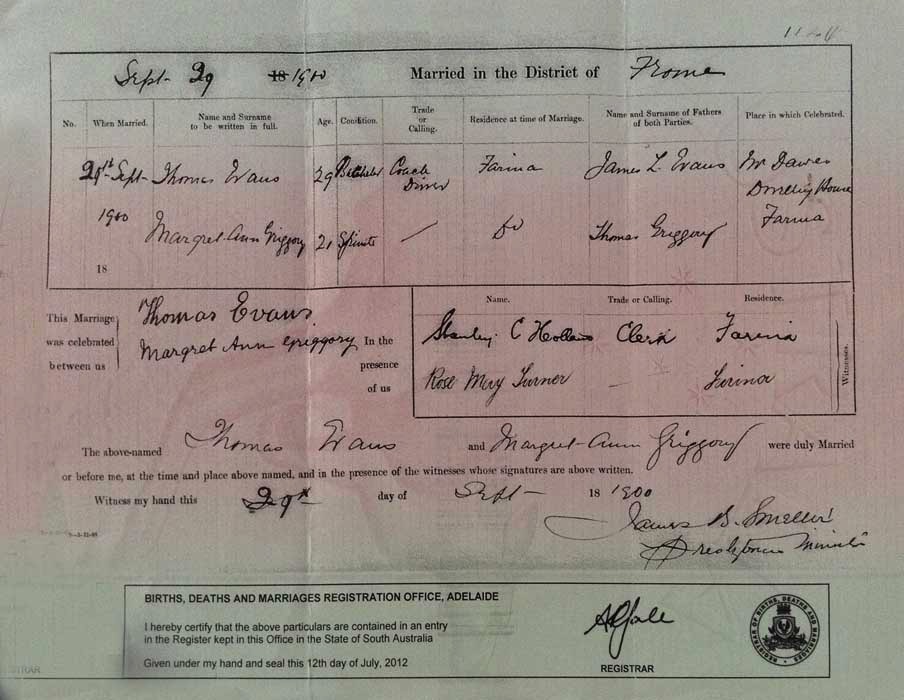 Sept- 29 18 1900 Married in the District of Frome
No. When Married. Name and Surname to be written in full. Age. Condition. Trade or Calling. Residence at time of Marriage. Name and Surname of Fathers of both Parties. Place in which Celebrated.
Sept- Thomas Evans 29 Bachelor Coach Driver Farina James L. Evans Mr Dawes Dwelling House Farina
1900 Margret Ann Griggory 21 Spinster — Do Thomas Griggory
18
This Marriage was celebrated between us Thomas Evans
Margret Ann Griggory In the presence of us
Name. Trade or Calling. Residence.
Stanley C Clerk Farina
Rose Mery Turner — Farina
Witnesses.
The above-named Thomas Evans and Margret Ann Griggory were duly Married
or before me, at the time and place above named, and in the presence of the witnesses whose signatures are above written.
Witness my hand this 29th day of Sept- 18 1900
James B.
Minister
BIRTHS, DEATHS AND MARRIAGES REGISTRATION OFFICE, ADELAIDE
I hereby certify that the above particulars are contained in an entry
in the Register kept in this Office in the State of South Australia
Given under my hand and seal this 12th day of July, 2012
REGISTRAR
REGISTRAR OF BIRTHS, DEATHS AND MARRIAGES